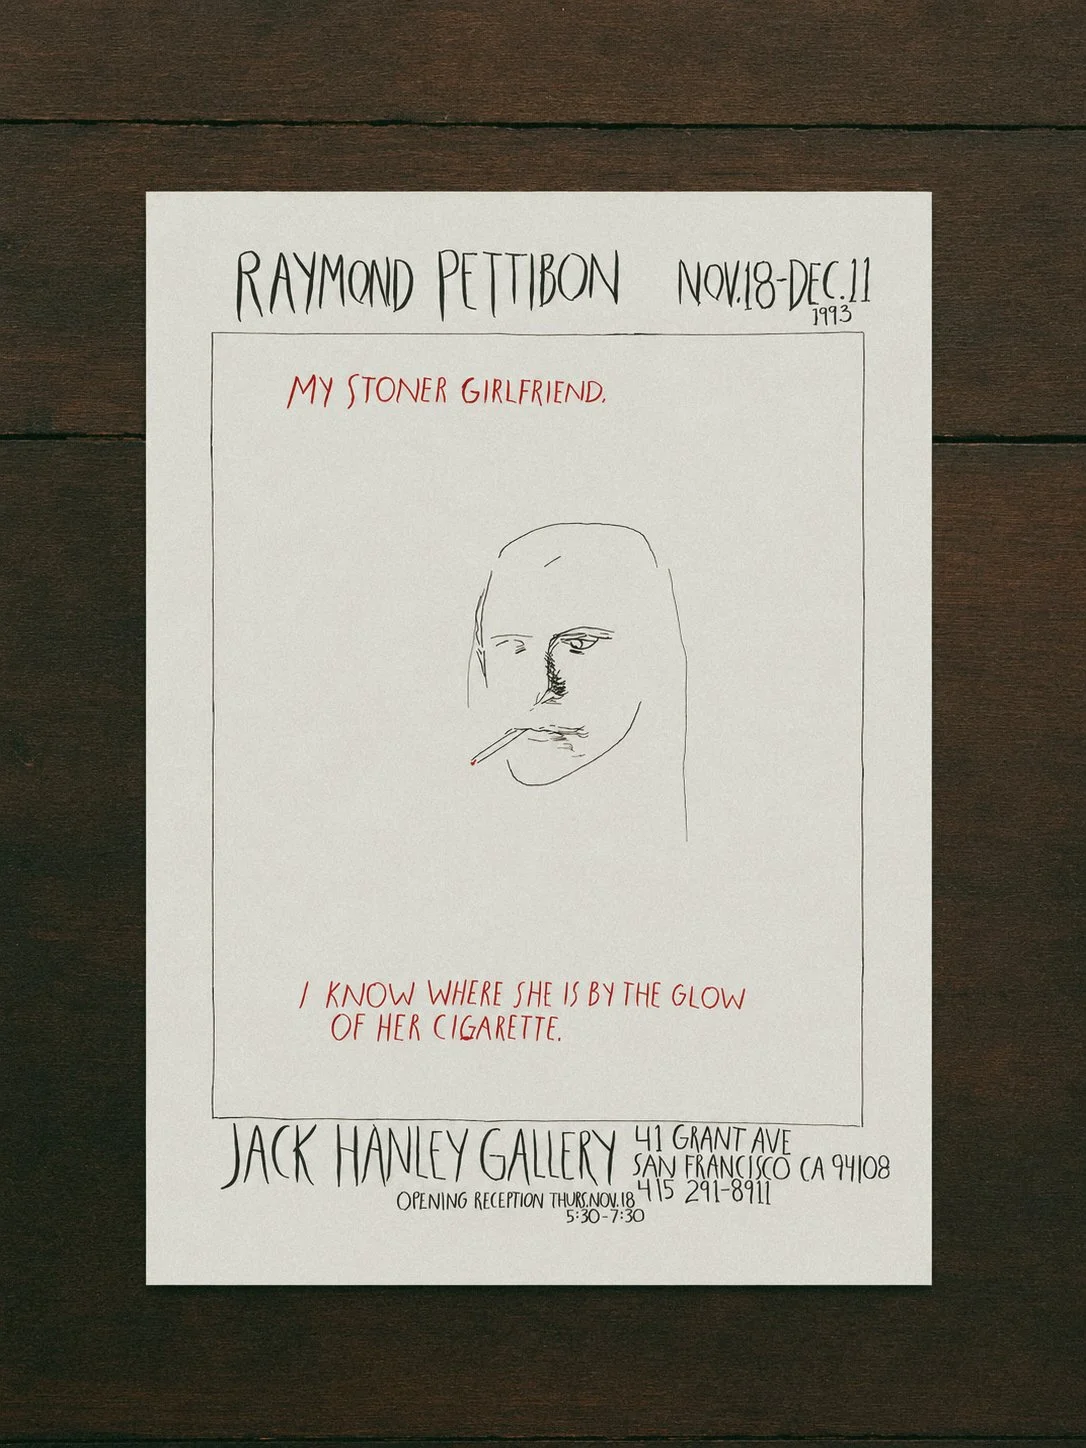 RAYMOND PETTIBON NOV.18-DEC.11
1993
MY STONER GIRLFRIEND.
I KNOW WHERE SHE IS BY THE GLOW
OF HER CIGARETTE.
JACK HANLEY GALLERY
41 GRANT AVE
SAN FRANCISCO CA 94108
415 291-8911
OPENING RECEPTION THURS.NOV.18
5:30-7:30